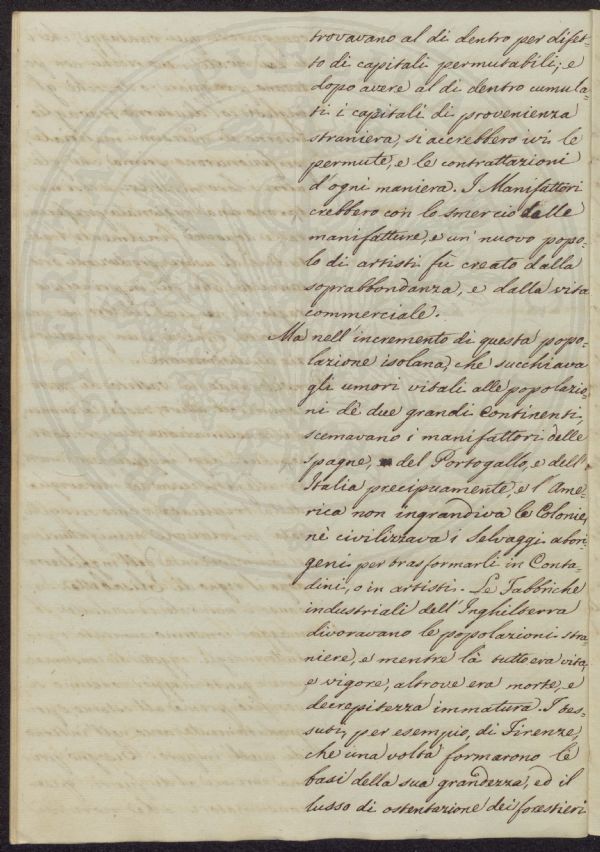 trovavano al di dentro per difet-
to di capitali permutabili; e
dopo avere al di dentro cumula-
ti i capitali di provenienza
straniera, si accrebbero ivi le
permute, e le contrattazioni
d'ogni maniera. I Manifattori
crebbero con lo smercio delle
manifatture, e un' nuovo popo-
lo di artisti fù creato dalla
soprabbondanza, e dalla vita
commerciale.
Ma nell'incremento di questa popo-
lazione isolana, che succhiava
gli umori vitali alle popolazio-
ni dè due grandi Continenti,
scemavano i manifattori delle
Spagne, del Portogallo, e dell'
Italia precipuamente, e l'Ame-
rica non ingrandiva le Colonie,
nè civilizzava i Selvaggi abori-
geni per trasformarli in Conta-
dini, o in artisti. Le Fabbriche
industriali dell'Inghilterra
divoravano le popolazioni stra-
niere, e mentre là tutto era vita,
e vigore, altrove era morte, e
decrepitezza immatura. I tes-
suti, per esempio, di Firenze,
che una volta formarono le
basi della sua grandezza, ed il
lusso di ostentazione dei forestieri